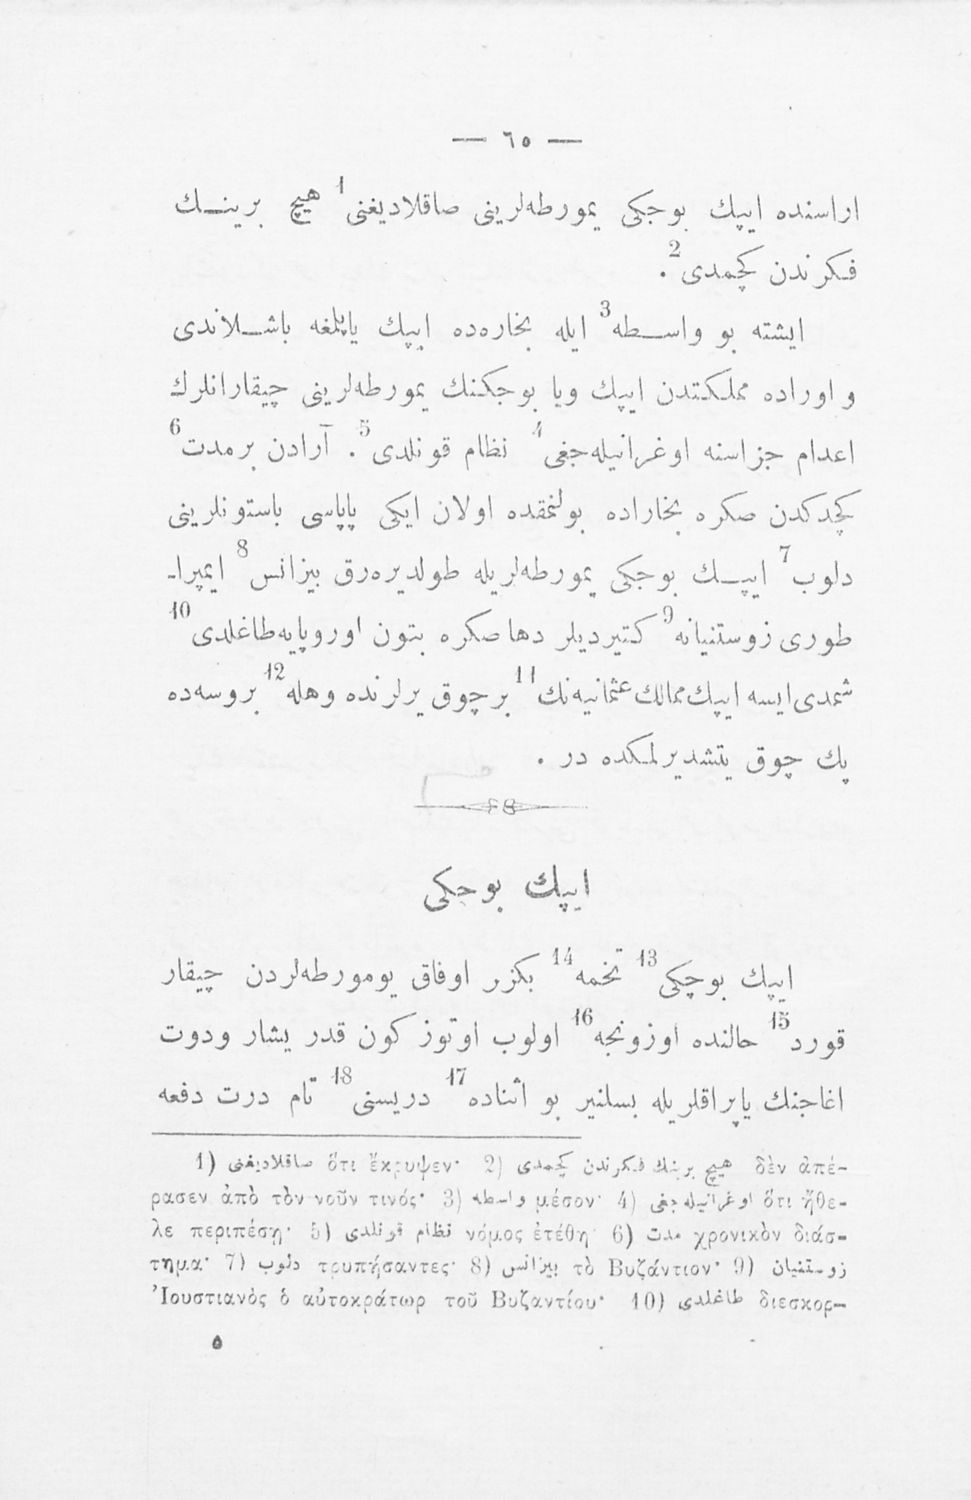 — ٦٥ —
اراسنده ايپك بوجكى يمورطه‌لرينى صاقلاديغنى1 هيچ برينك
فكرندن كچمدى2.
ايشته بو واسطه3 ايله بخاره‌ده ايپك ياپلغه باشلاندى
و اوراده مملكتدن ايپك ويا بوجكنك يمورطه‌لرينى چيقارانلرك
اعدام جزاسنه اوغرانيله‌جغى4 نظام قونلدى5. آرادن برمدت6
كچدكدن صكره بخاراده بولنمقده اولان ايكى پاپاسى باستونلرينى
دلوب7 ايپك بوجكى يمورطه‌لريله طولديره‌رق بيزانس8 ايمپرا-
طورى زوستنيانه9 كتيرديلر دها صكره بتون اوروپايه طاغلدى10
شمدى ايسه ايپك ممالك عثمانيه‌نك11 برچوق يرلرنده وهله12 بروسه‌ده
پك چوق يتشديرلمكده در .
ايپك بوجكى
ايپك بوچكى13 تخمه14 بكزر اوفاق يومورطه‌لردن چيقار
قورد15 حالنده اوزونجه16 اولوب اوتوز كون قدر يشار ودوت
اغاجنك ياپراقلريله بسلنير بو اثناده17 دريسنى18 تام درت دفعه
1) صاقلاديغنى ὅτι ἔκρυψεν· 2) هيچ برينك فكرندن كچمدى δὲν ἀπέ-
ρασεν ἀπὸ τὸν νοῦν τινός· 3) واسطه μέσον· 4) اوغرانيله‌جغى ὅτι ἤθε-
λε περιπέσῃ· 5) نظام قونلدى νόμος ἐτέθη· 6) مدت χρονικὸν διάσ-
τημα· 7) دلوب τρυπήσαντες· 8) بيزانس τὸ Βυζάντιον· 9) زوستنيان
Ἰουστιανὸς ὁ αὐτοκράτωρ τοῦ Βυζαντίου· 10) طاغلدى διεσκορ-
٥